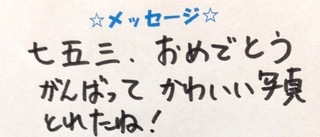 ☆メッセージ☆
七五三、おめでとう
がんばって かわいい写真
とれたね！